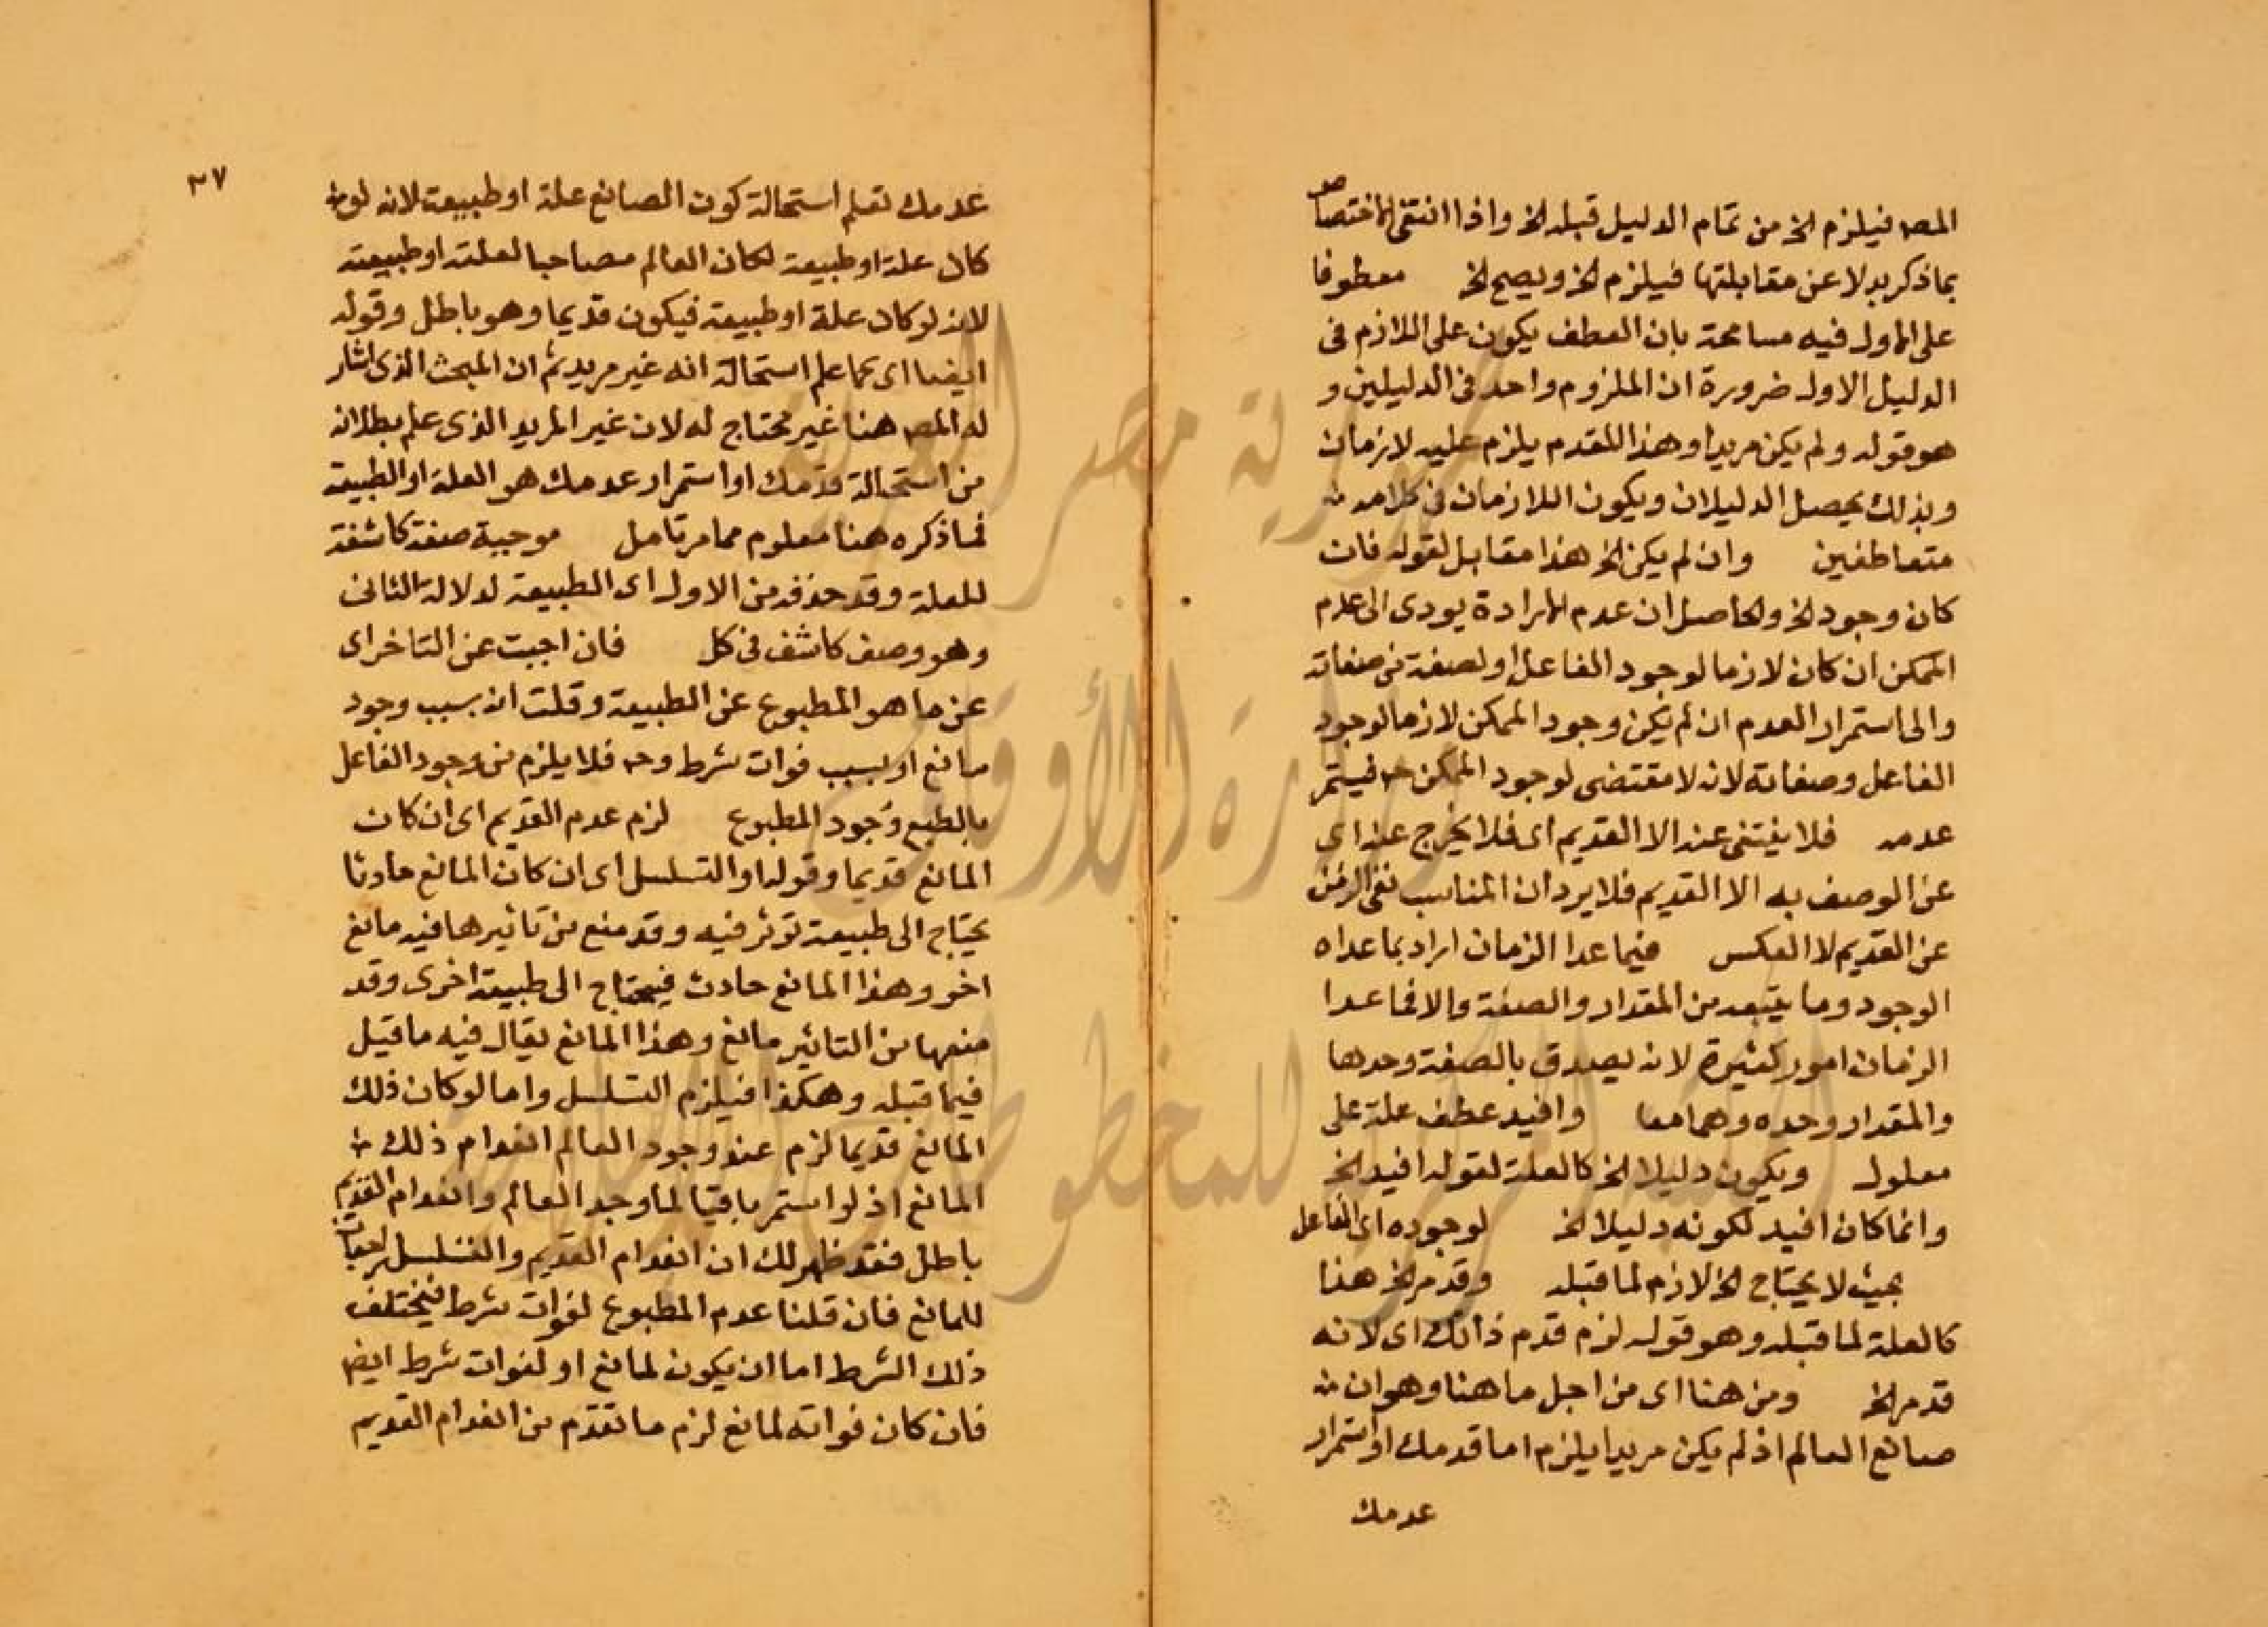 المصـ فيلزم الخ من تمام الدليل قبله الخ واذا انتفى الاختصاص
بما ذكر بدلا عن مقابلتها فيلزم الخ ويصح الخ معطوفا
على الاول فيه مسامحة بان العطف يكون على اللازم فى
الدليل الاول ضرورة ان الملزوم واحد فى الدليلين و
هو قوله ولم يكن مريدا وهذا المقدم يلزم عليه لازمان
وبذلك يحصل الدليلان ويكون اللازمان فى
متعاطفين وان لم يكن الخ هذا مقابل لقوله فان
كان وجود الخ والحاصل ان عدم الارادة يودى الى عدم
الممكن ان كان لازما لوجود الفاعل او لصفة من صفاته
والى استمرار العدم ان لم يكن وجود الممكن لازما لوجود
الفاعل وصفاته لانه لا مقتضى لوجود الممكن حـ فيستمر
عدمه فلا ينتفى عنه الا القديم اى فلا يخرج عنه اى
عن الوصف به الا القديم فلا يرد ان المناسب نفى الزمن
عن القديم لا العكس فيما عدا الزمان اراد بما عداه
الوجود وما يتبعه من المقدار والصفة والا فما عدا
الزمان امور كثيرة لانه يصدق بالصفة وحدها
والمقدار وحده وهما معا وافيد عطف علة على
معلول ويكون دليلا الخ كالعلة لقوله افيد الخ
وانما كان افيد لكونه دليلا الخ لوجوده اى الفاعل
بحيث لا يحتاج الخ لازم لما قبله وقد مر الخ هذا
كالعلة لما قبله وهو قوله لزم قدم ذاتك اى لانه
قد مر الخ ومن هنا اى من اجل ما هنا وهو ان
صانع العالم اذ لم يكن مريدا يلزم اما قدمك او استمرار
عدمك
٣٧
عدمك تعلم استحالة كون الصانع علة او طبيعة لانه لو
كان علة او طبيعة لكان العالم مصاحبا لعلته او طبيعته
لانه لو كان علة او طبيعة فيكون قديما وهو باطل وقوله
ايضا اى كما علم استحالة انه غير مريد ثم ان المبحث الذى اشار
له المصـ هنا غير محتاج له لان غير المريد الذى علم بطلانه
من استحالة قدمك او استمرار عدمك هو العلة او الطبيعة
فما ذكره هنا معلوم مما مر تامل موجبة صفة كاشفة
للعلة وقد حذفه من الاول اى الطبيعة لدلالة الثانى
وهو وصف كاشف فى كل فان اجبت عن التاخر اى
عن ما هو المطبوع عن الطبيعة وقلت انه بسبب وجود
مانع او بسبب فوات شرط وحـ فلا يلزم من وجود الفاعل
بالطبع وجود المطبوع لزم عدم القديم اى ان كان
المانع قديما وقوله او التسلسل اى ان كان المانع حادثا
يحتاج الى طبيعة توثر فيه وقد منع من تاثيرها فيه مانع
اخر وهذا المانع حادث فيحتاج الى طبيعة اخرى وقد
منعها من التاثير مانع وهذا المانع يقال فيه ما قيل
فيما قبله وهكذا فيلزم التسلسل واما لو كان ذلك
المانع قديما لزم عند وجود العالم انعدام ذلك
المانع اذ لو استمر باقيا لما وجد العالم وانعدام القديم
باطل فقد ظهر لك ان انعدام القديم والتسلسل راجعان
للمانع فان قلنا عدم المطبوع لفوات شرط فيختلف
ذلك الشرط اما ان يكون لمانع او لفوات شرط ايضا
فان كان فواته لمانع لزم ما تقدم من انعدام القديم